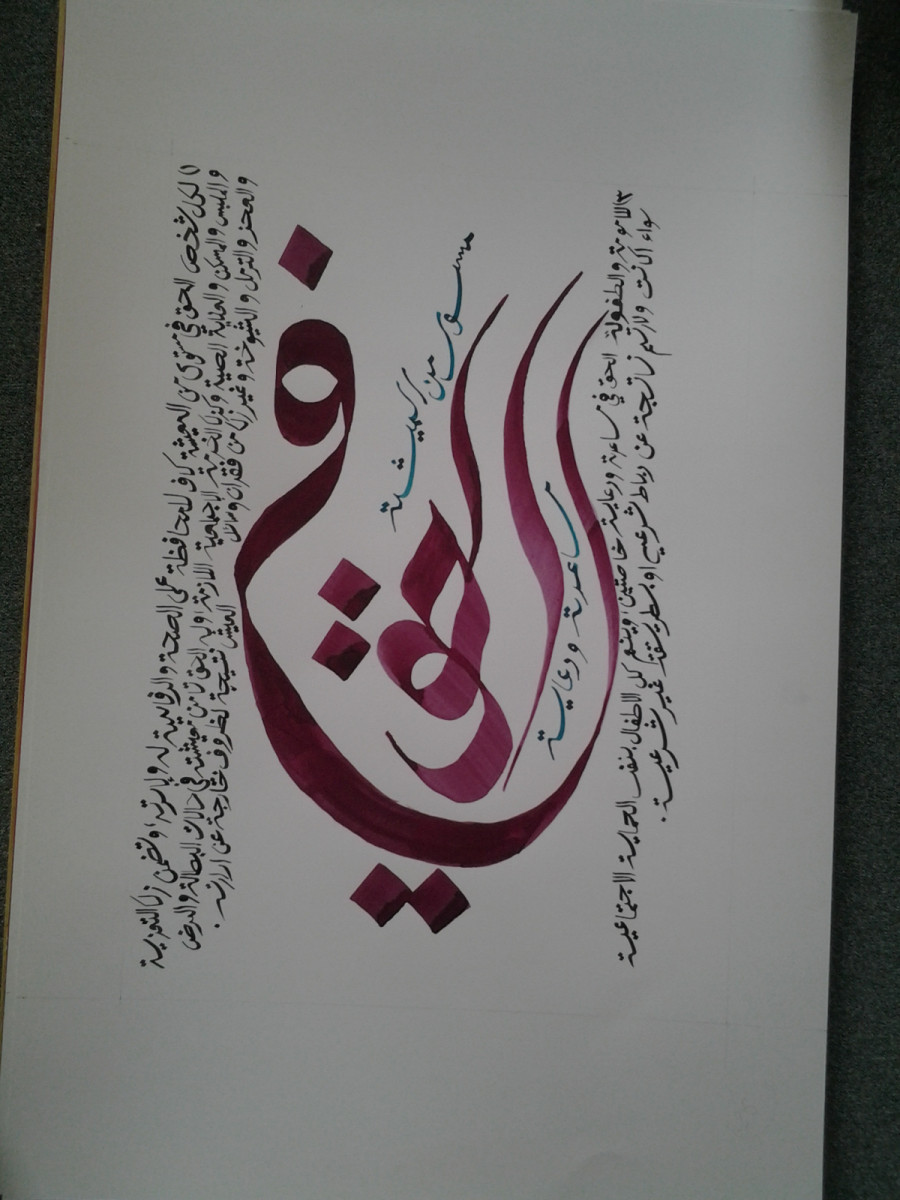 ١) لكل شخص الحق في مستوى من المعيشة كاف للمحافظة على الصحة والرفاهية له ولأسرته، وتضمن ذلك التغذية
والملبس والمسكن والعناية الطبية وكذلك الخدمة الإجتماعية اللازمة، وله الحق تأمين معيشته في حالات البطالة والمرض
والعجز والترمل والشيوخة وغير ذلك من فقدان وسائل العيش نتيجة لظروف خارجة عن ارادته.
الحق في
مستوى من
مساعدة ورعاية
٢) للامومة والطفولة الحق في مساعدة ورعاية خاصتين، وينعم كل الاطفال بنفس الحماية الاجتماعية
سواء أكانت ولادتهم ناتجة عن رباط شرعي أو بطريقة غير شرعية.